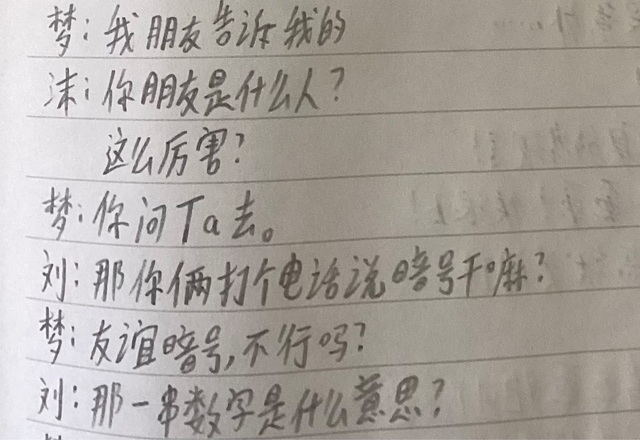 梦:我朋友告诉我的
沫:你朋友是什么人?
这么厉害?
梦:你问Ta去。
刘:那你俩打个电话说暗号干嘛?
梦:友谊暗号,不行吗?
刘:那一串数字是什么意思?